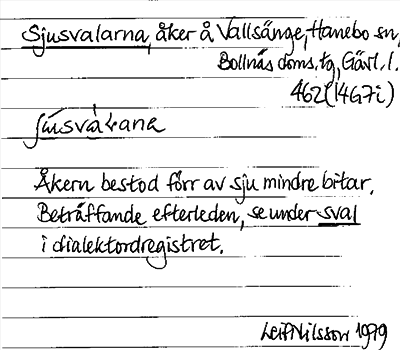 Sjusvalarna, åker å Vallsänge, Hanebo sn,
Bollnäs doms.tg, Gävl. l.
462 (14G7i)
Åkern bestod förr av sju mindre bitar.
Beträffande efterleden, se under sval
i dialektordregistret.
Leif Nilsson 1979